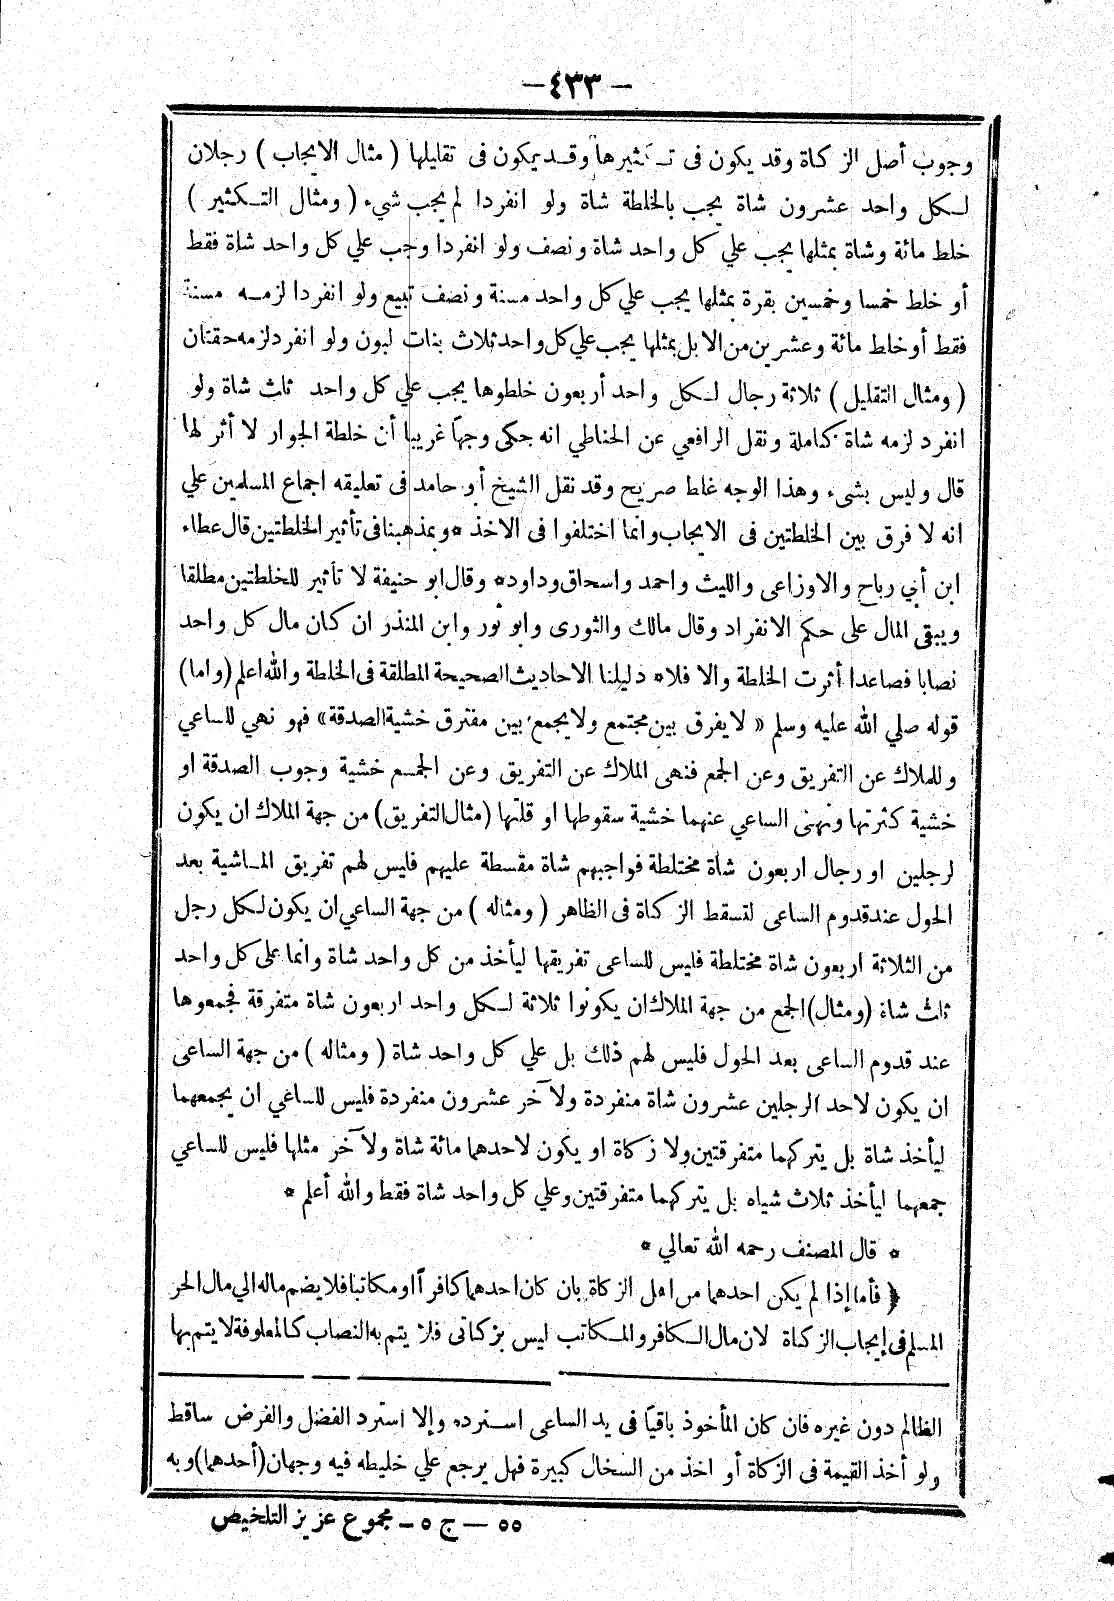 -٤٣٣-
وجوب أصل الزكاة وقد يكون فى تكثيرها وقد يكون فى تقليلها ( مثال الايجاب ) رجلان
لكل واحد عشرون شاة يجب بالخلطة شاة ولو انفردا لم يجب شيء ( ومثال التكثير )
خلط مائة وشاة بمثلها يجب علي كل واحد شاة ونصف ولو انفردا وجب علي كل واحد شاة فقط
أو خلط خمسا وخمسين بقرة بمثلها يجب علي كل واحد مسنة ونصف تبيع ولو انفردا لزمه مسنة
فقط أو خلط مائة وعشرين من الابل بمثلها يجب علي كل واحد ثلاث بنات لبون ولو انفرد لزمه حقتان
( ومثال التقليل ) ثلاثة رجال لكل واحد أربعون خلطوها يجب علي كل واحد ثلث شاة ولو
انفرد لزمه شاة كاملة ونقل الرافعي عن الحناطي انه حكى وجهاً غريبا أن خلطة الجوار لا أثر لها
قال وليس بشىء وهذا الوجه غلط صريح وقد نقل الشيخ أبو حامد فى تعليقه اجماع المسلمين علي
انه لا فرق بين الخلطتين فى الايجاب وانما اختلفوا فى الاخذ * وبمذهبنا فى تأثير الخلطتين قال عطاء
ابن أبي رباح والاوزاعى والليث واحمد واسحاق وداود * وقال ابو حنيفة لا تأثير للخلطتين مطلقا
ويبقى المال على حكم الانفراد وقال مالك والثورى وابو ثور وابن المنذر ان كان مال كل واحد
نصابا فصاعدا أثرت الخلطة والا فلا * دليلنا الاحاديث الصحيحة المطلقة فى الخلطة والله اعلم (واما)
قوله صلي الله عليه وسلم « لا يفرق بين مجتمع ولا يجمع بين مفترق خشية الصدقة » فهو نهي للساعي
وللملاك عن التفريق وعن الجمع فنهى الملاك عن التفريق وعن الجمع خشية وجوب الصدقة او
خشية كثرتها ونهى الساعي عنهما خشية سقوطها او قلتها (مثال التفريق) من جهة الملاك ان يكون
لرجلين او رجال اربعون شاة مختلطة فواجبهم شاة مقسطة عليهم فليس لهم تفريق الماشية بعد
الحول عند قدوم الساعى لتسقط الزكاة فى الظاهر ( ومثاله ) من جهة الساعي ان يكون لكل رجل
من الثلاثة اربعون شاة مختلطة فليس للساعى تفريقها ليأخذ من كل واحد شاة وانما على كل واحد
ثلث شاة (ومثال) الجمع من جهة الملاك ان يكونوا ثلاثة لكل واحد اربعون شاة متفرقة فجمعوها
عند قدوم الساعى بعد الحول فليس لهم ذلك بل علي كل واحد شاة ( ومثاله ) من جهة الساعى
ان يكون لاحد الرجلين عشرون شاة منفردة ولآخر عشرون منفردة فليس للساعي ان يجمعهما
ليأخذ شاة بل يتركهما متفرقتين ولا زكاة او يكون لاحدهما مائة شاة ولآخر مثلها فليس للساعي
جمعهما ليأخذ ثلاث شياه بل يتركهما متفرقتين وعلي كل واحد شاة فقط والله أعلم *
* قال المصنف رحمه الله تعالي *
﴿ فأما إذا لم يكن احدهما من اهل الزكاة بان كان احدهما كافراً او مكاتبا فلا يضم ماله الي مال الحر
المسلم فى إيجاب الزكاة لان مال الكافر والمكاتب ليس بزكاتى فلا يتم به النصاب كالمعلوفة لا يتم بها
الظالم دون غيره فان كان المأخوذ باقياً فى يد الساعى استرده وإلا استرد الفضل والفرض ساقط
ولو أخذ القيمة فى الزكاة أو اخذ من السخال كبيرة فهل يرجع علي خليطه فيه وجهان (أحدهما) وبه
٥٥ — ج ٥ - مجموع عزيز التلخيص